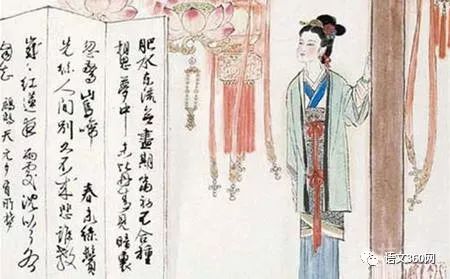 肥水东流無盡期 當初不合種
相思 夢中未比丹青見 暗裏
忽驚山鳥啼 春未綠 鬢
先絲 人間別久不成悲 誰教
歲歲紅蓮夜 兩處沈吟各
自知 鷓鴣天 元夕有所夢
语文360网